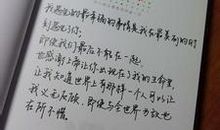 我感觉的最幸福的事情是我在最美的时
刻遇见你,
即使我们最后不能在一起,
也感谢上帝让你出现在了我的生命里,
让我知道世界上有那样一个人可以让
我义无反顾,即使与全世界为敌也
在所不惜。